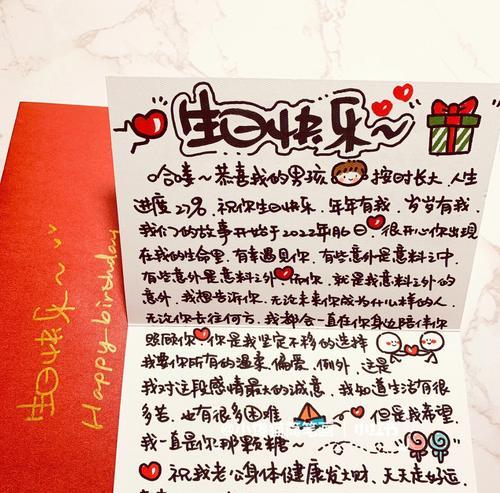 生日快乐～
哈喽～恭喜我的男孩 按时长大，人生
进度27%，祝你生日快乐，年年有我，岁岁有我，
我们的故事开始于2022年 很开心你出现
在我的生命里，有幸遇见你，有些意外是意料之中，
有些意外是意料之外 而你，就是我意料之外的
意外，我想告诉你，无论未来你成为什么样的人，
无论你去往何方，我都会一直在你身边陪伴你
照顾你 你是我坚定不移的选择
我要你所有的温柔，偏爱，例外，这是
我对这段感情最大的诚意，我知道生活有很
多苦，也有很多困难 但是我希望
我一直是你那颗糖～
祝我老公身体健康发大财，天天走好运，
生日快乐～
Happy birthday